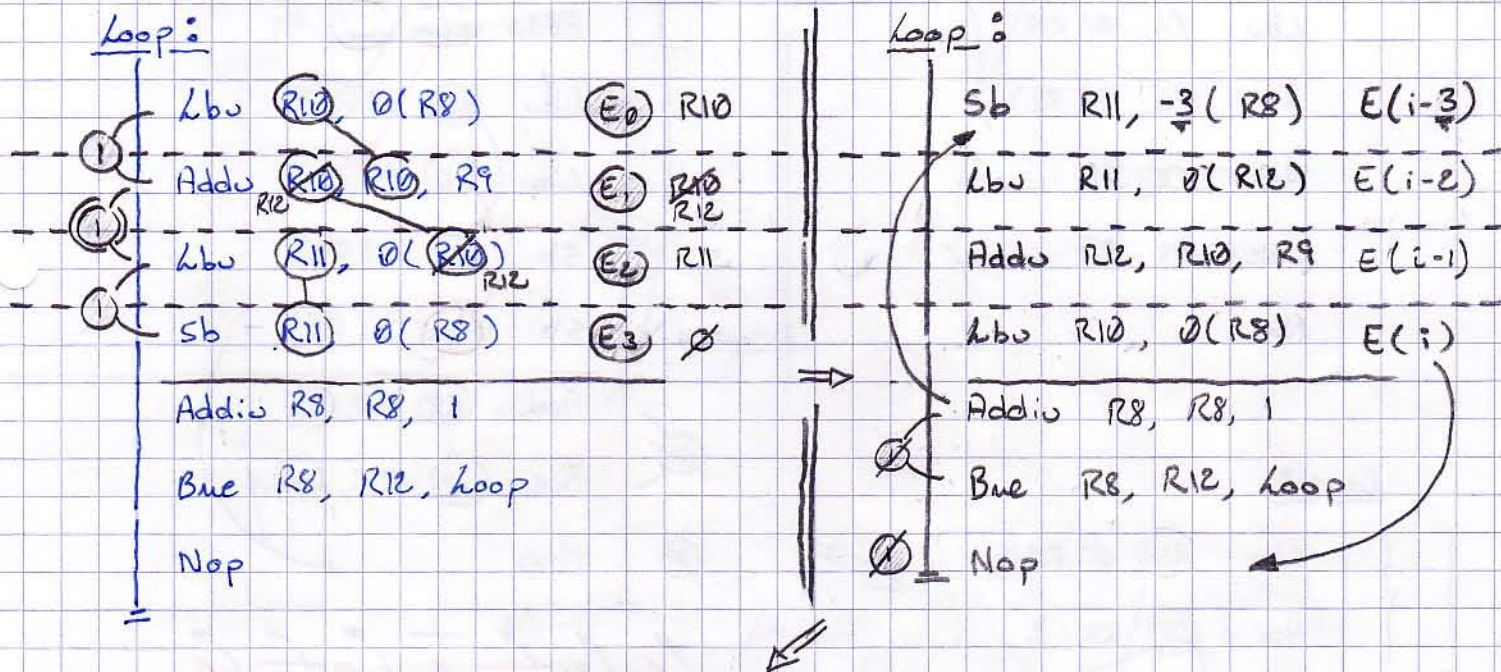 Loop :
① Lbu R10, 0(R8) E0 R10
Addu R10 R12, R10, R9 E1 R10 R12
① Lbu R11, 0(R10) R12 E2 R11
① Sb R11 0(R8) E3 Ø
Addiu R8, R8, 1
Bne R8, R12, Loop
Nop
⇒
Loop :
Sb R11, -3(R8) E(i-3)
Lbu R11, 0(R12) E(i-2)
Addu R12, R10, R9 E(i-1)
Lbu R10, 0(R8) E(i)
Addiu R8, R8, 1
1 Bne R8, R12, Loop
1 Nop